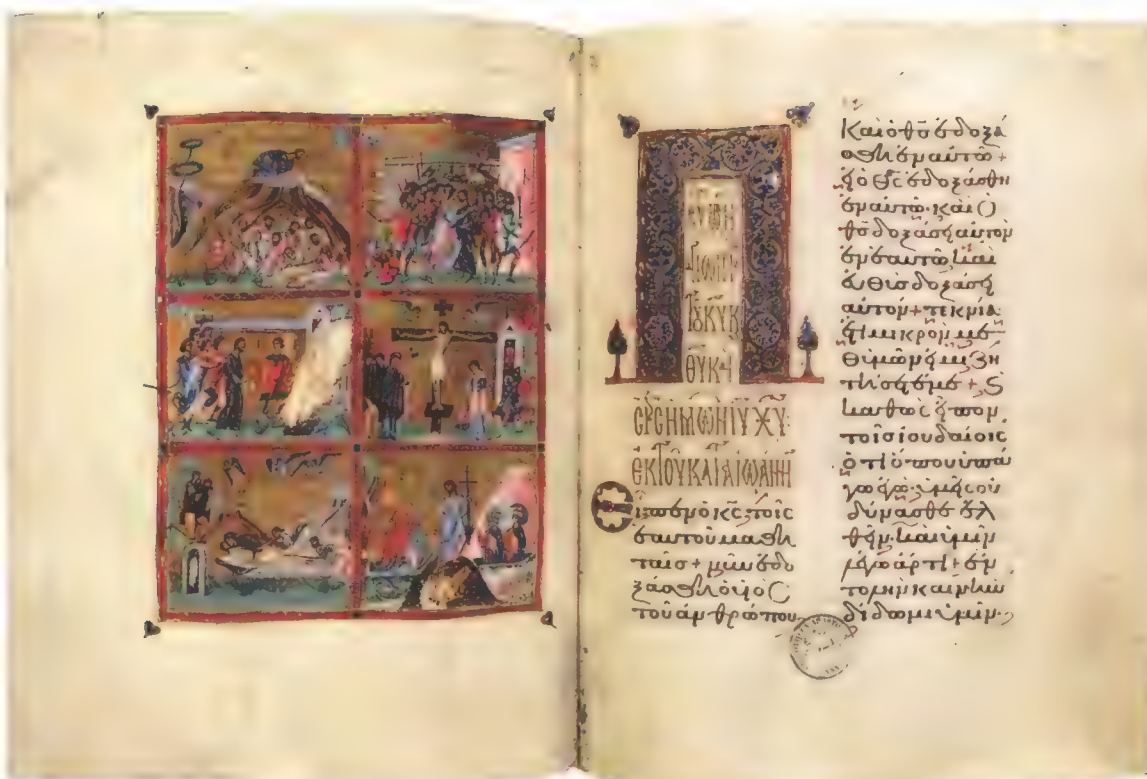 ΘΥΚΑΙ
ΣΡΣΗΜΩΝΙΥ ΧΥ·
ἐΚΤΟΥΚΑΤΑΙΩΑΝΝ
Εἶπεν ὁ κς τοῖς
ἑαυτοῦ μαθη
ταῖσ + νῦν ἐδο
ξάσθη ὁ υἱὸς
τοῦ ἀνθρώπου·
Καὶ ὁ θς ἐδοξά
σθη ἐν αὐτῶ +
εἰ ὁ θς ἐδοξάσθη
ἐν αὐτῶ· καὶ ὁ
θς δοξάσει αὐτὸν
ἐν ἑαυτῶ καὶ
εὐθὺσ δοξάσει
αὐτόν + τεκνία
ἔτι μικρὸν με
θ ὑμῶν εἰμι ζη
τήσετέ με +
καθὼς εἶπον
τοῖσ ἰουδαίοις
ὅτι ὅπου ὑπά
γω ἐγὼ ὑμεῖς οὐ
δύνασθε ἐλ
θεῖν· καὶ ὑμῖν
λέγω ἄρτι + ἐν
τολὴν καινὴν
δίδωμι ὑμῖν·